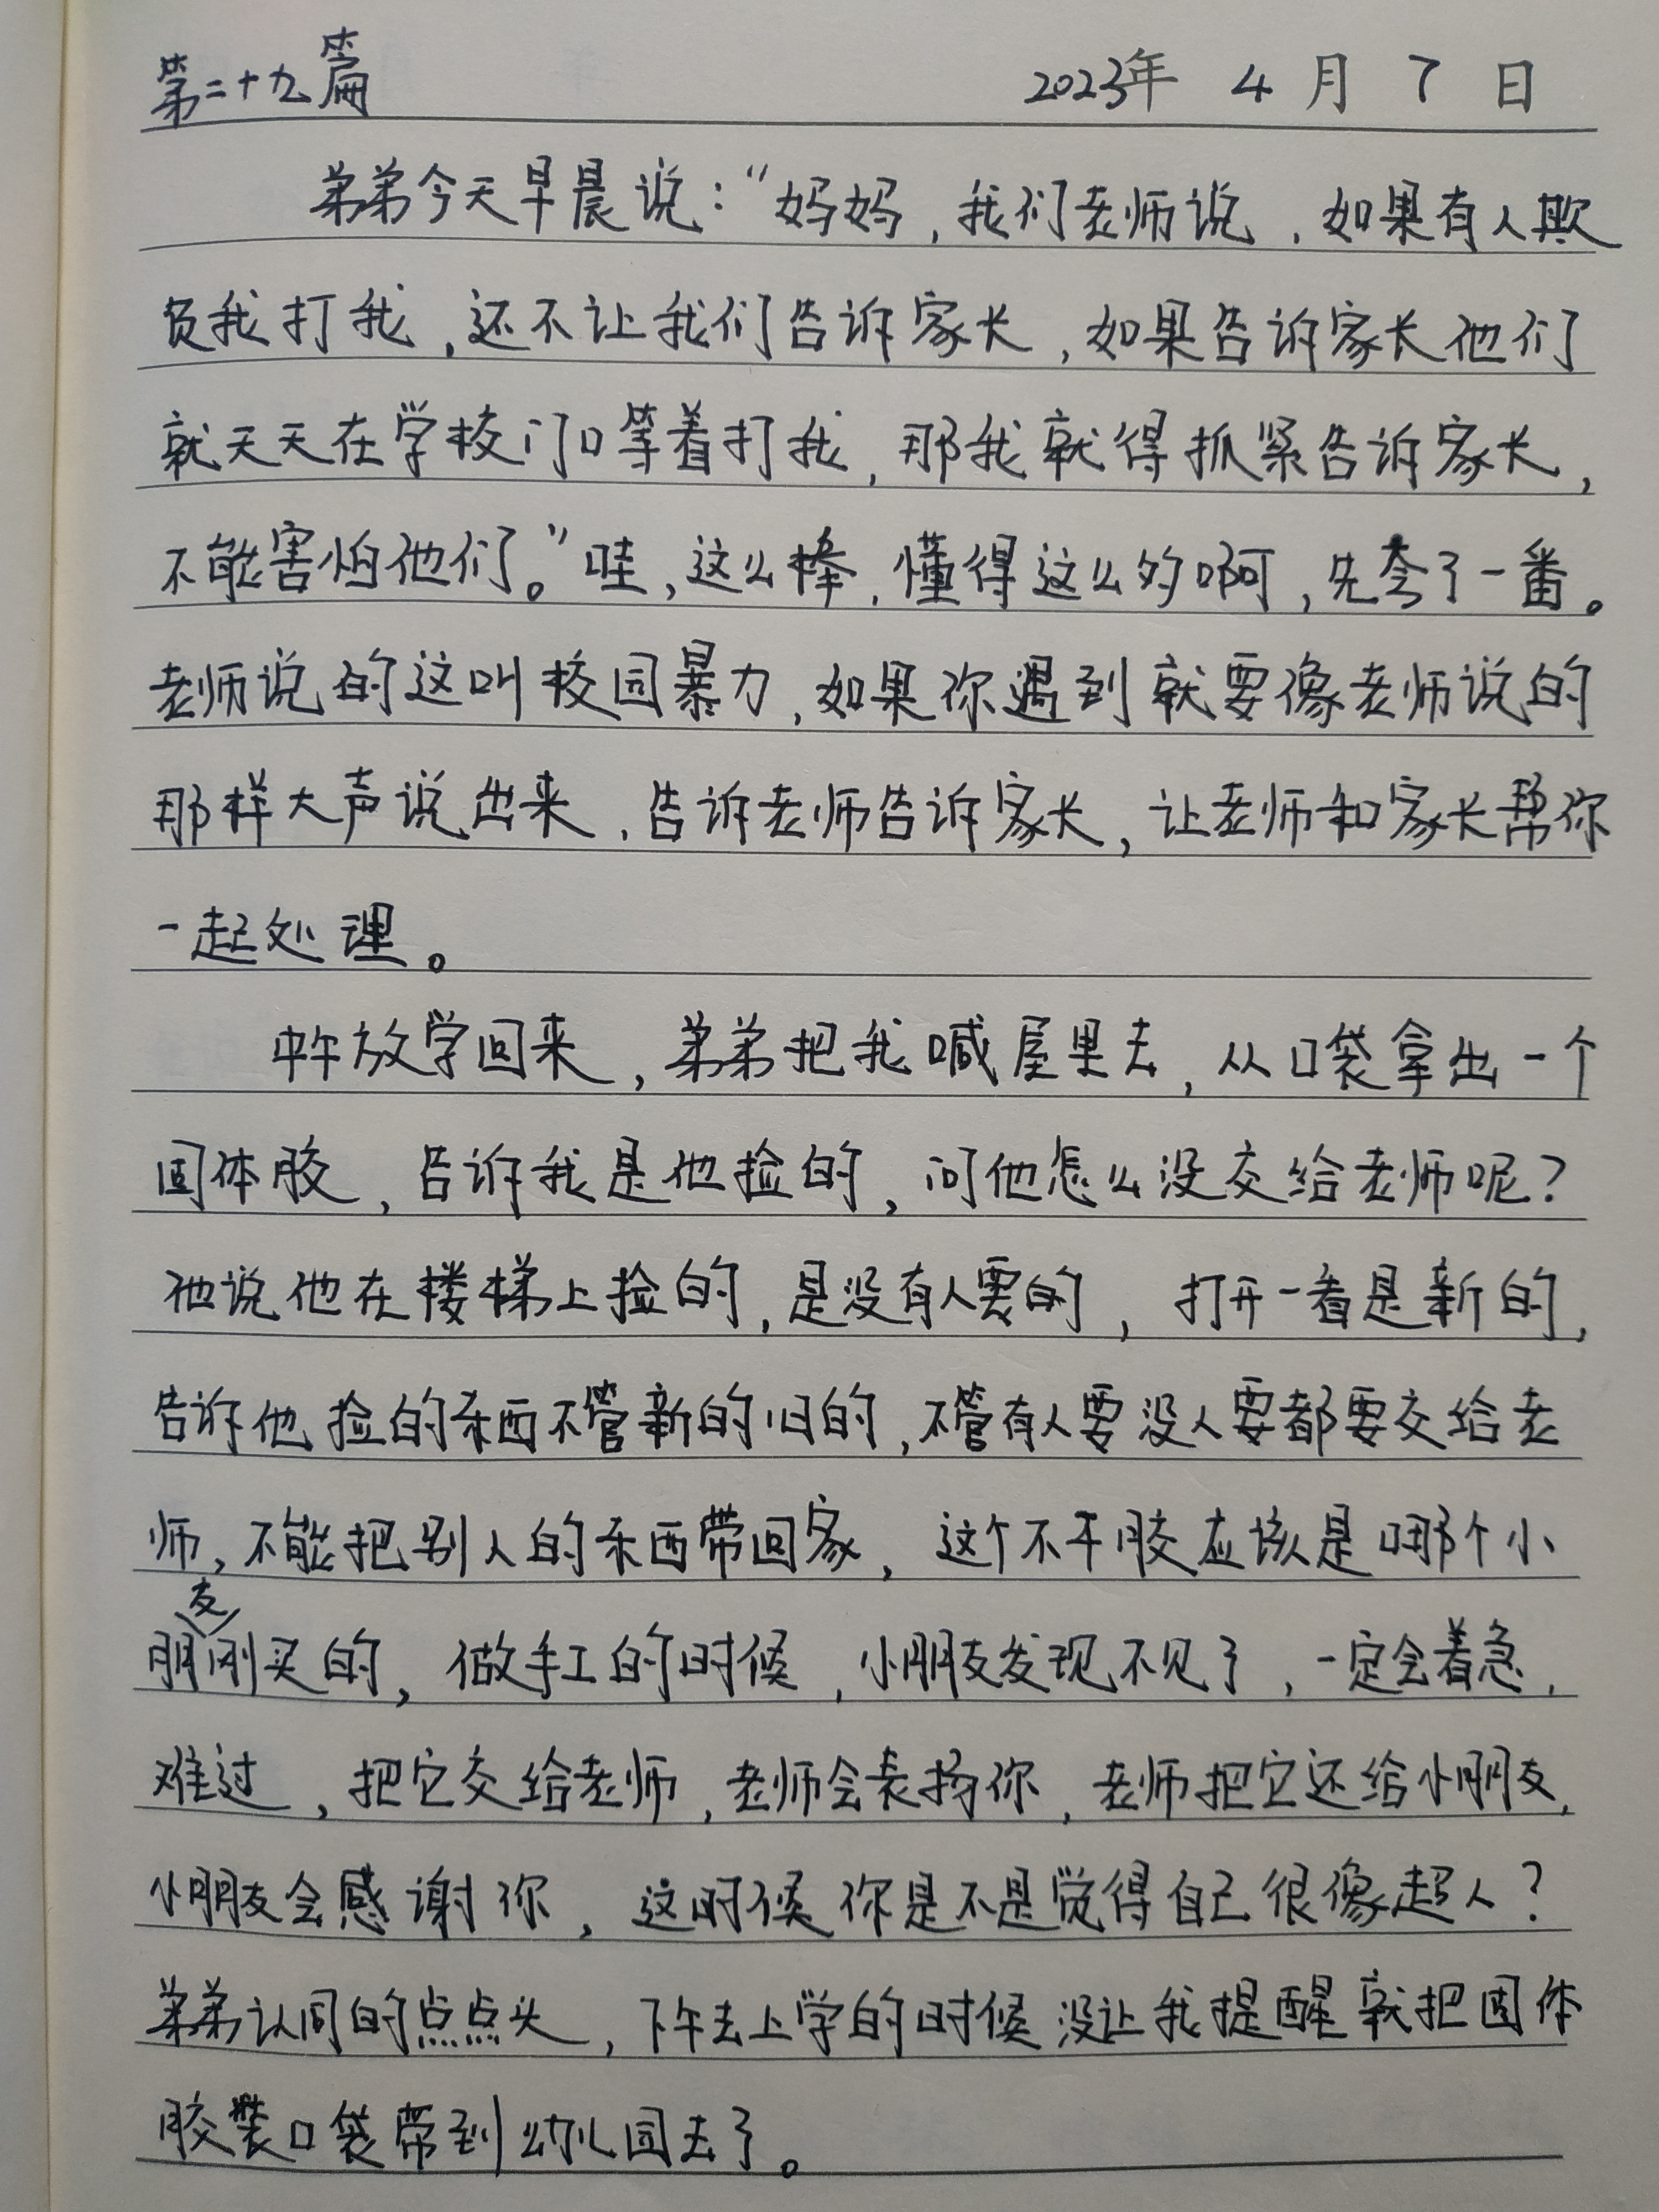 第二十九篇 2023年 4 月 7 日
弟弟今天早晨说：“妈妈，我们老师说，如果有人欺
负我打我，还不让我们告诉家长，如果告诉家长他们
就天天在学校门口等着打我，那我就得抓紧告诉家长，
不能害怕他们。”哇，这么棒，懂得这么多啊，先夸了一番。
老师说的这叫校园暴力，如果你遇到就要像老师说的
那样大声说出来，告诉老师告诉家长，让老师和家长帮你
一起处理。
中午放学回来，弟弟把我喊屋里去，从口袋拿出一个
固体胶，告诉我是他捡的，问他怎么没交给老师呢？
他说他在楼梯上捡的，是没有人要的，打开一看是新的，
告诉他捡的东西不管新的旧的，不管有人要没人要都要交给老
师，不能把别人的东西带回家，这个不干胶应该是哪个小
朋友刚买的，做手工的时候，小朋友发现不见了，一定会着急，
难过，把它交给老师，老师会表扬你，老师把它还给小朋友，
小朋友会感谢你，这时候你是不是觉得自己很像超人？
弟弟认同的点点头，下午去上学的时候没让我提醒就把固体
胶装口袋带到幼儿园去了。